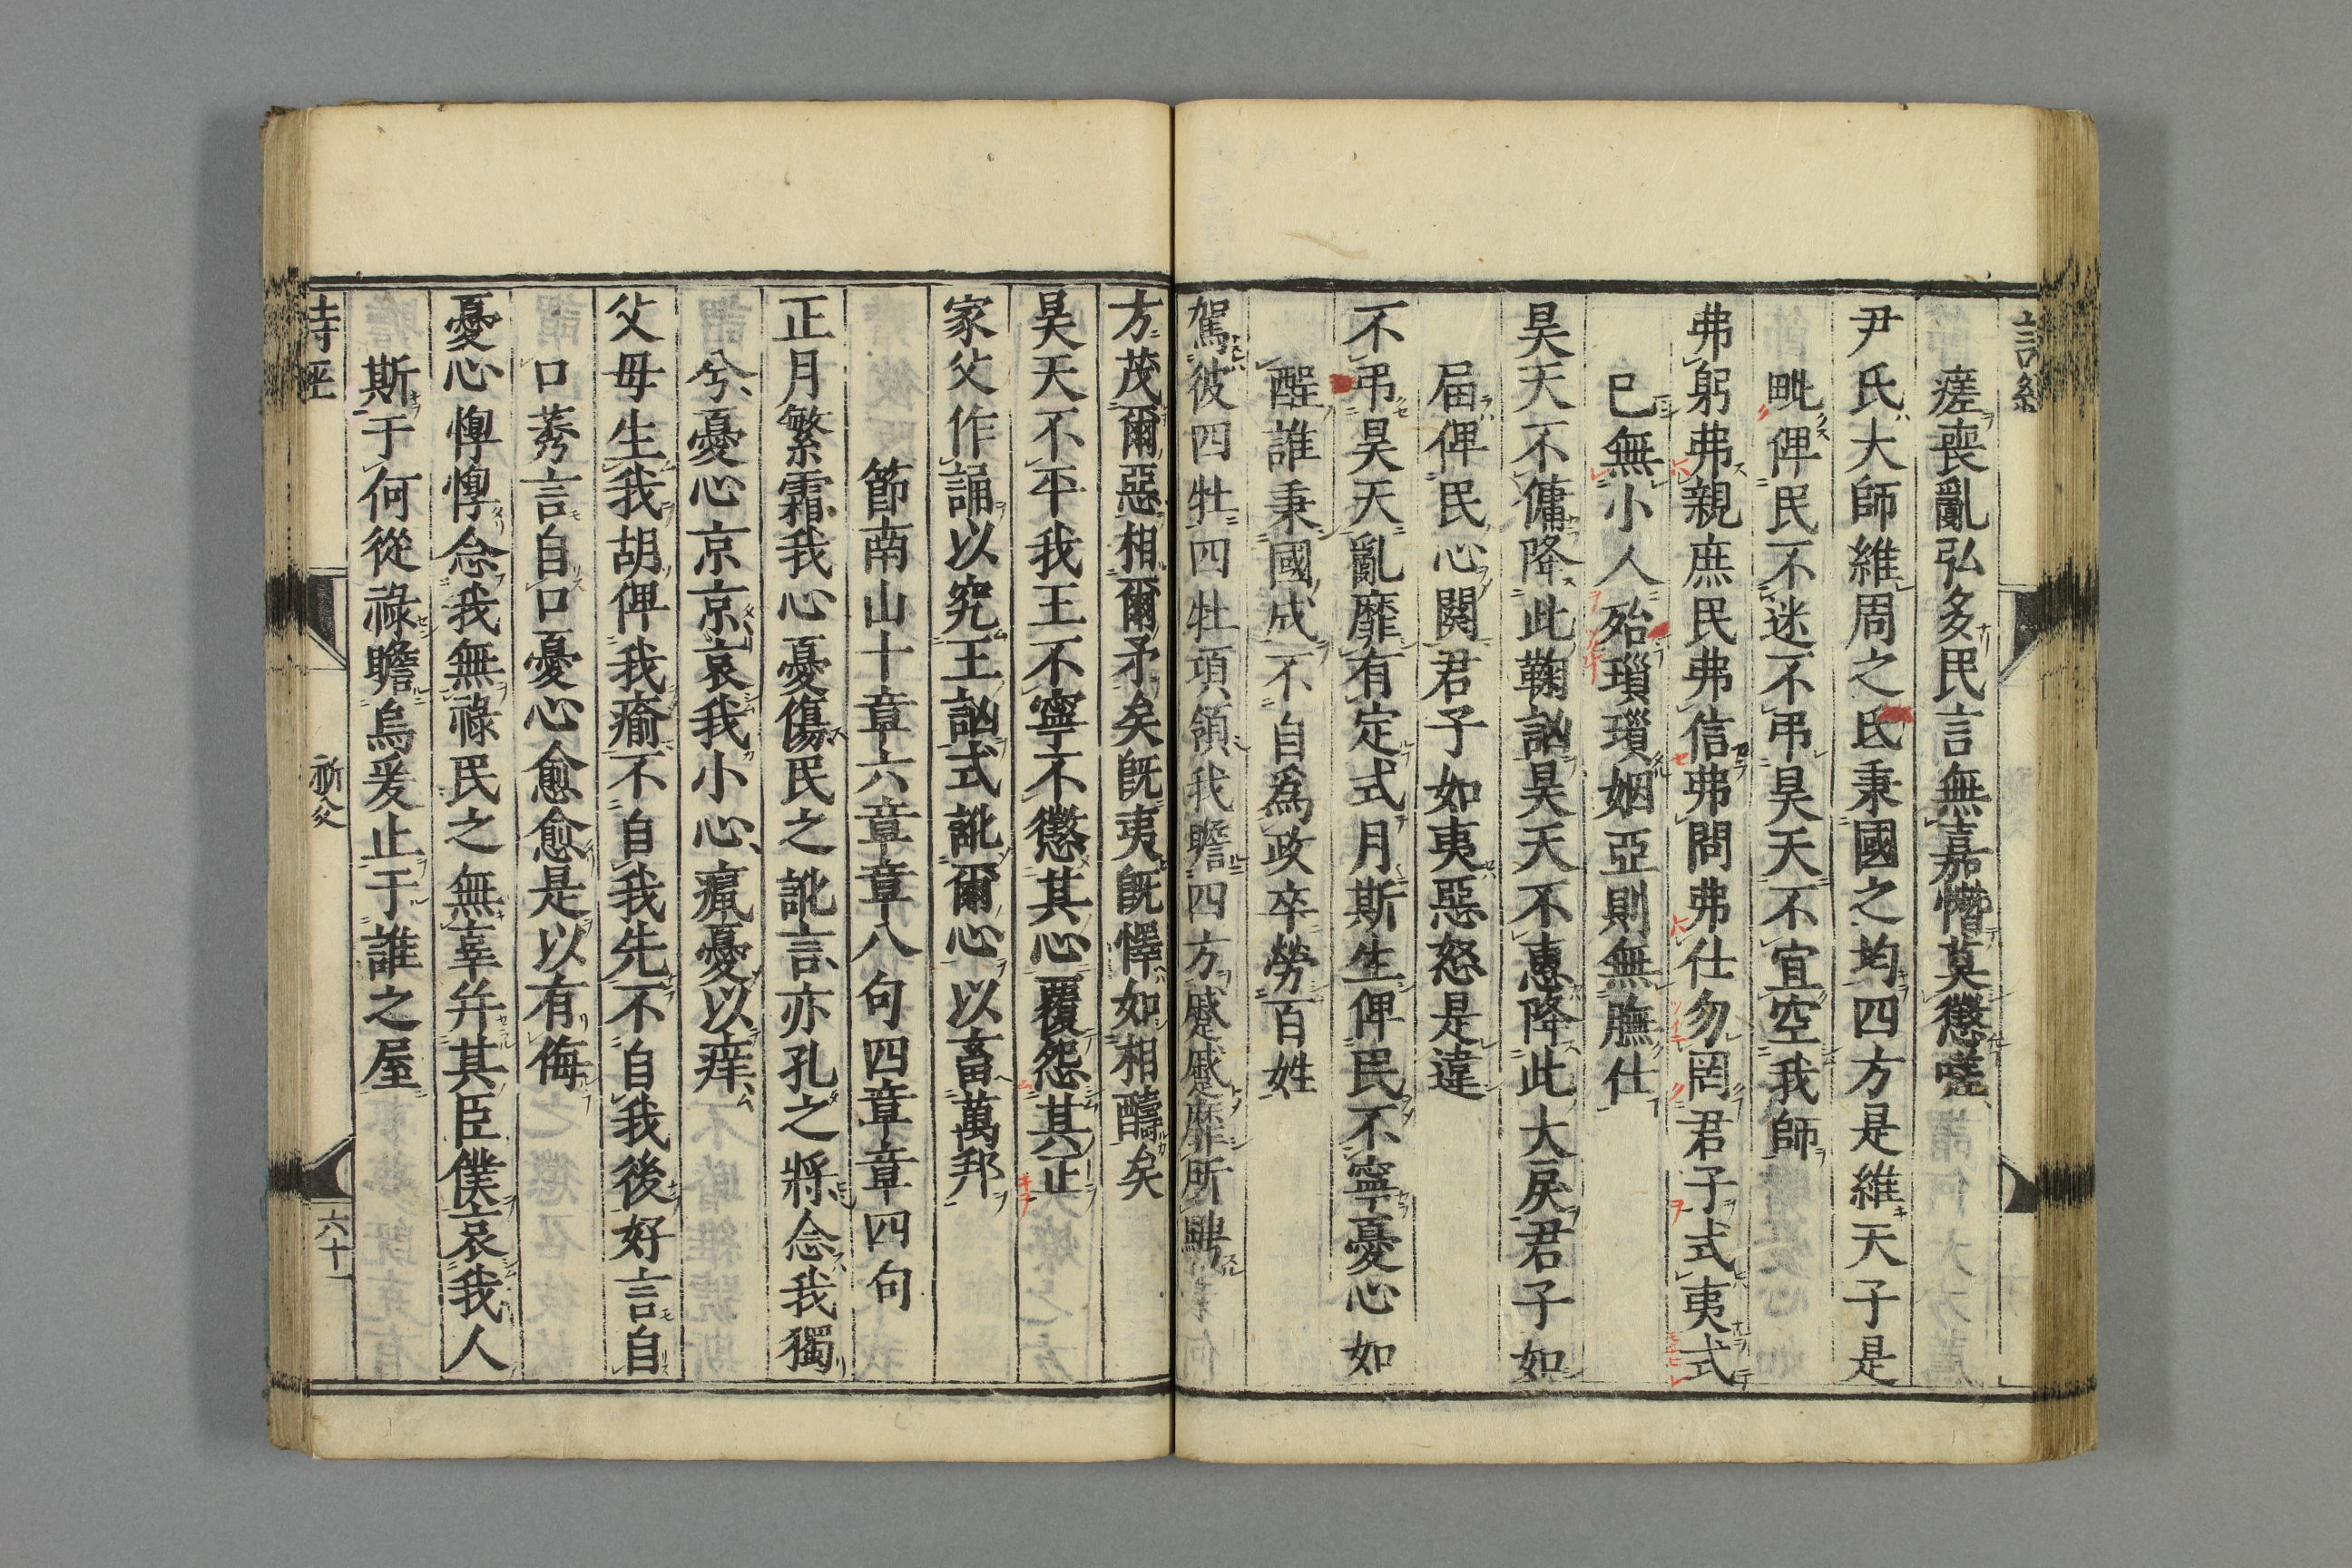 詩經
瘥喪亂弘多民言無嘉憯莫懲嗟
尹氏大師維周之氐秉國之均四方是維天子是
毗俾民不迷不弔昊天不宜空我師
弗躬弗親庶民弗信弗問弗仕勿罔君子式夷式
已無小人殆瑣瑣姻亞則無膴仕
昊天不傭降此鞠訩昊天不惠降此大戾君子如
屆俾民心闋君子如夷惡怒是違
不弔昊天亂靡有定式月斯生俾民不寧憂心如
酲誰秉國成不自爲政卒勞百姓
駕彼四牡四牡項領我瞻四方蹙蹙靡所騁
方茂爾惡相爾矛矣旣夷旣懌如相醻矣
昊天不平我王不寧不懲其心覆怨其正
家父作誦以究王訩式訛爾心以畜萬邦
節南山十章六章章八句四章章四句
正月繁霜我心憂傷民之訛言亦孔之將念我獨
兮憂心京京哀我小心癙憂以痒
父母生我胡俾我瘉不自我先不自我後好言自
口莠言自口憂心愈愈是以有侮
憂心惸惸念我無祿民之無辜幷其臣僕哀我人
斯于何從祿瞻烏爰止于誰之屋
詩經
祈父
六十